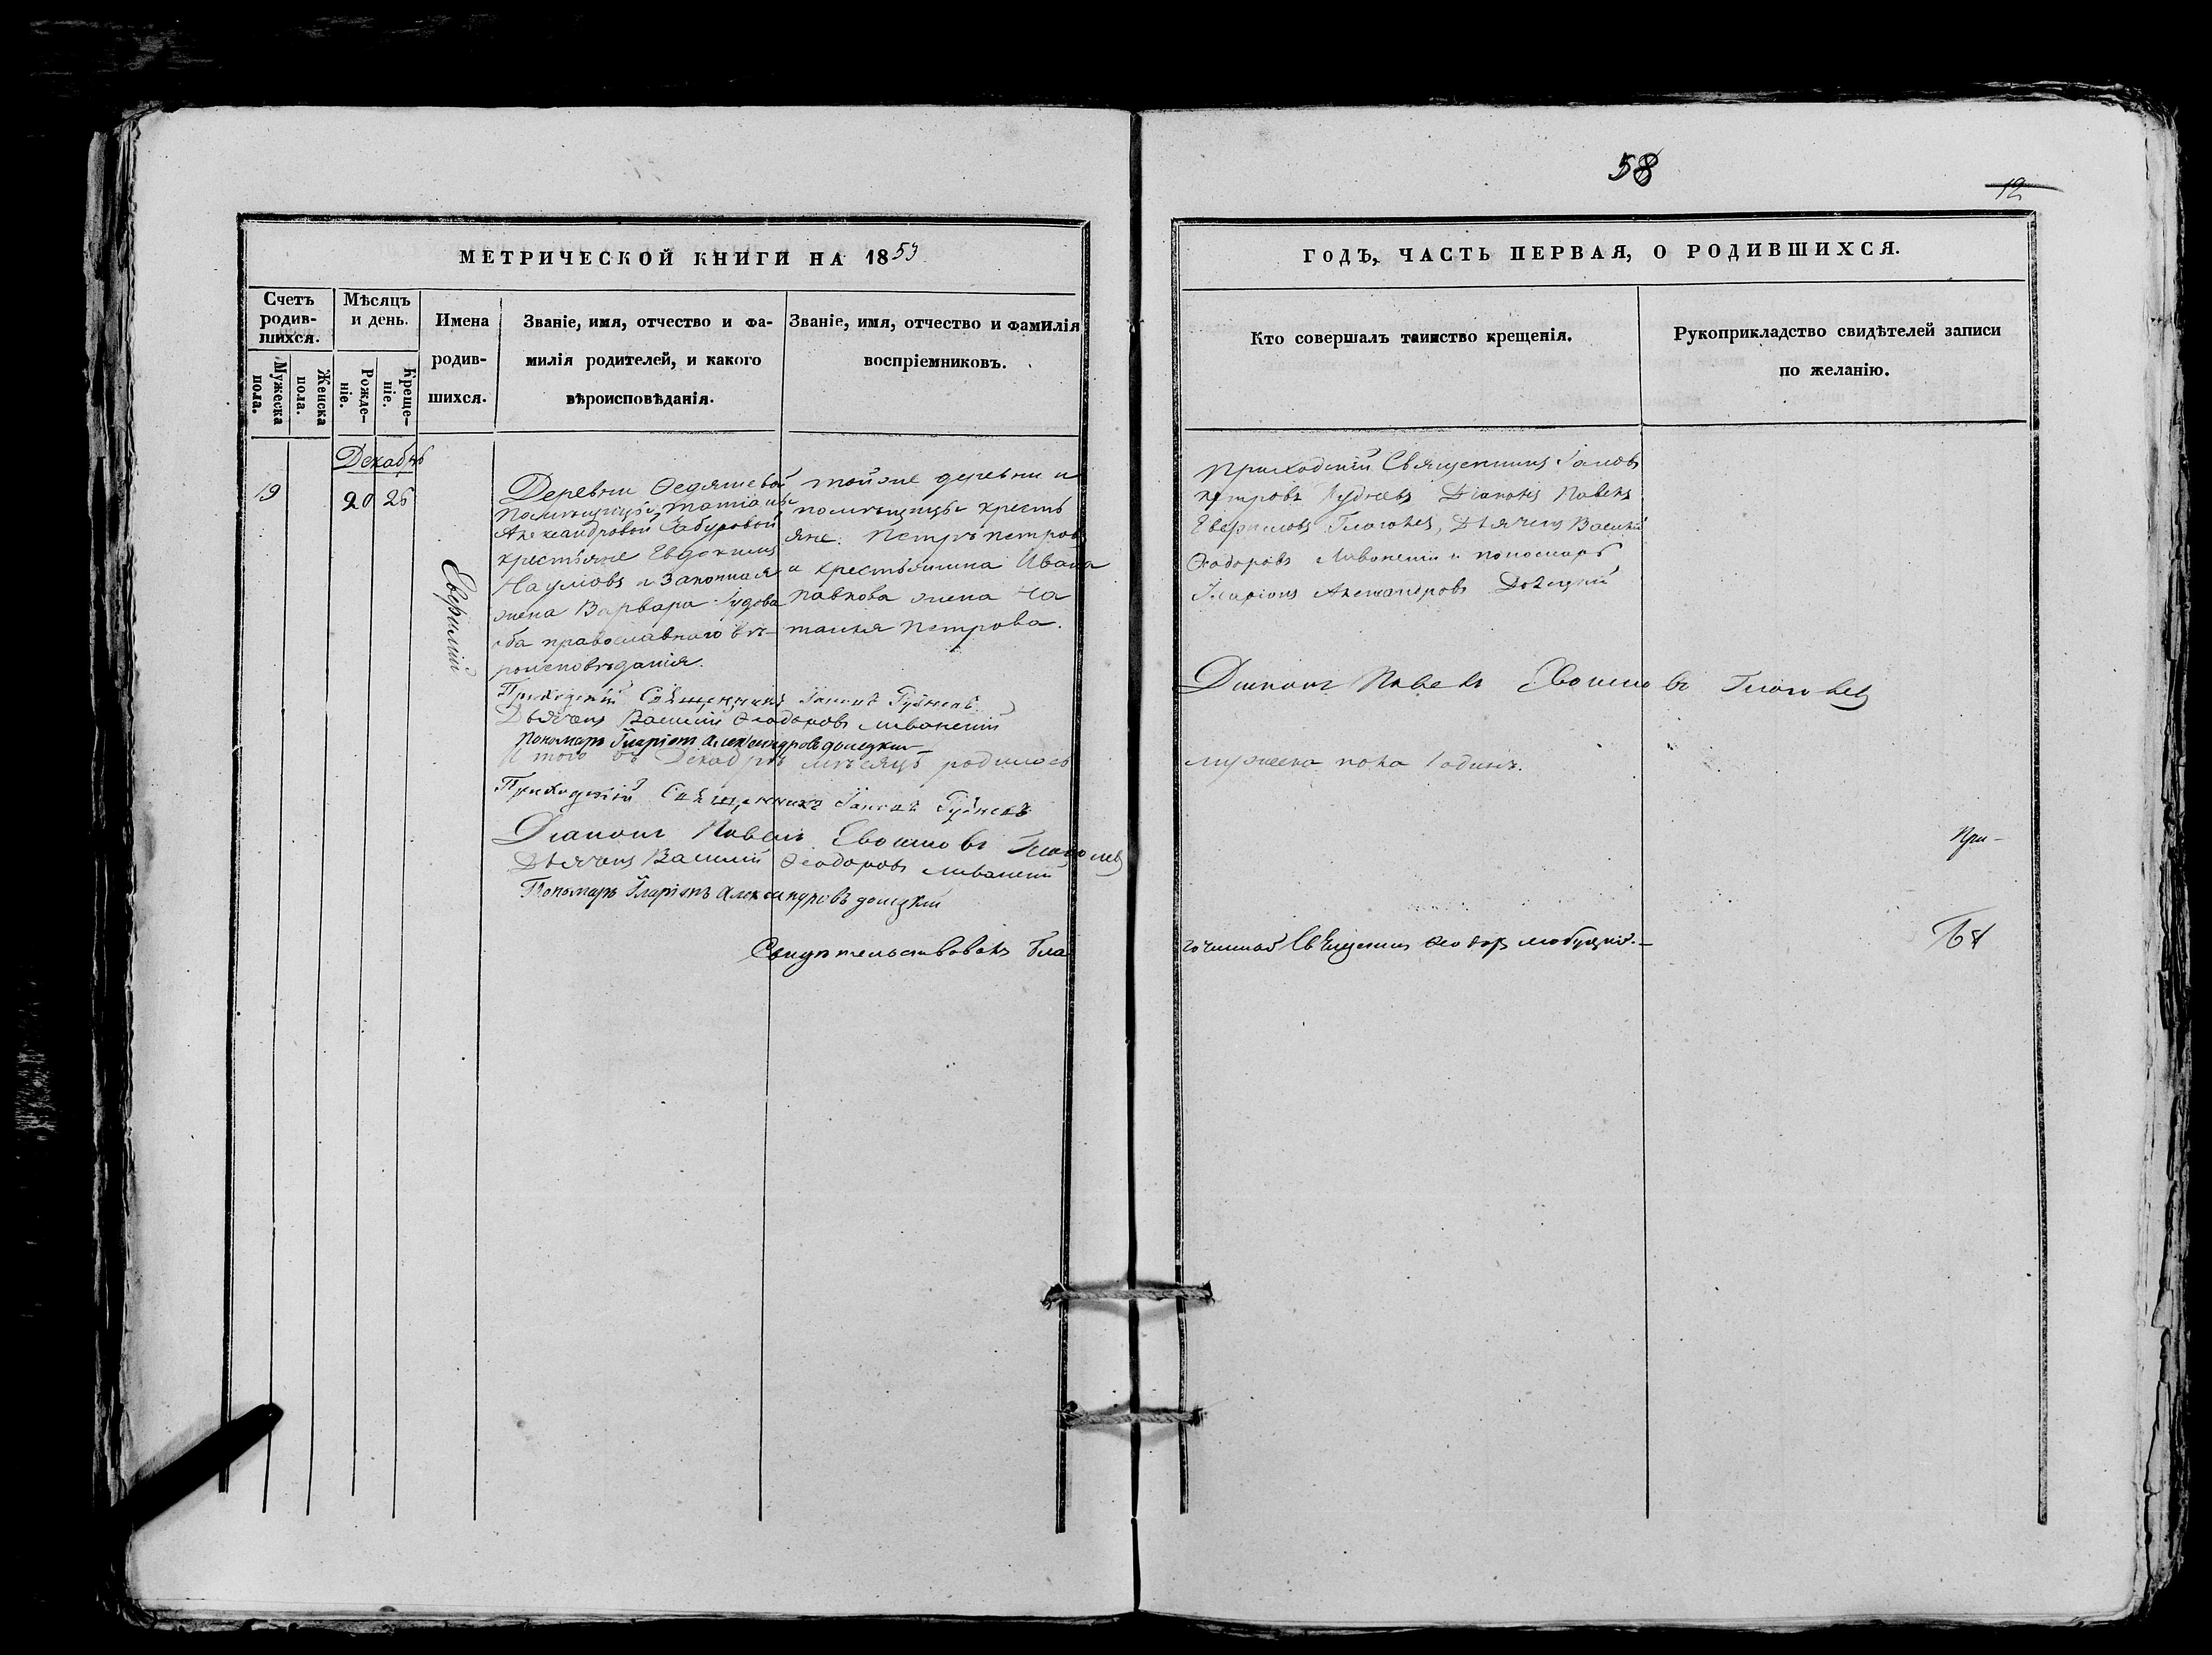 58
12
МЕТРИЧЕСКОЙ КНИГИ НА 1853
ГОДЪ, ЧАСТЬ ПЕРВАЯ, О РОДИВШИХСЯ.
Счетъ
родив-
шихся.
Мужеска
пола.
Женска
пола.
Мѣсяцъ
и день.
Рожде-
ніе.
Креще-
ніе.
Имена
родив-
шихся.
Званіе, имя, отчество и фа-
милія родителей, и какого
вѣроисповѣданія.
Званіе, имя, отчество и фамилія
воспріемниковъ.
Кто совершалъ таинство крещенія.
Рукоприкладство свидѣтелей записи
по желанію.
Декабрь
19
20 26
Деревни Ѳедяшевой
помѣщицы Татіаны
Александровой
крестьяне Евдокимъ
Наумовъ и законная
жена Варвара
оба православнаго вѣ-
роисповѣданія.
тойже деревни и
помѣщицы кресть
яне: Петръ Петровъ
и крестьянина Ивана
Павлова жена На
талія Петрова.
Приходскій Священникъ Іаковъ
Петровъ Рудневъ Діаконъ Павелъ
Глаголевъ, Дьячекъ Василій
Ѳеодоровъ и пономарь
Иларіонъ Александровъ Донецкій
Приходскій Священникъ Іаковъ Рудневъ
Дьячекъ Василій Ѳеодоровъ
Пономарь Иларіонъ Александровъ донецкій
Діаконъ Павелъ Глаголевъ
Итого въ Декабрѣ мѣсяцѣ родилось
мужеска пола 1 одинъ.
Приходскій Священникъ Іаковъ Рудневъ
Діаконъ Павелъ Глаголевъ
Дьячекъ Василій Ѳеодоровъ
Пономарь Иларіонъ Александровъ донецкій
При-
Свидѣтельствовалъ Бла
гочинный Священникъ Ѳеодоръ Любуцкій.